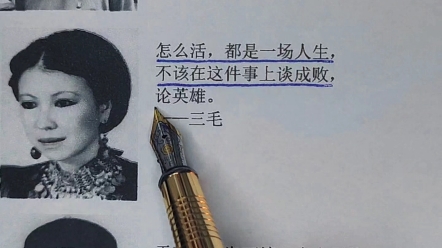 怎么活，都是一场人生，
不该在这件事上谈成败，
论英雄。
——三毛